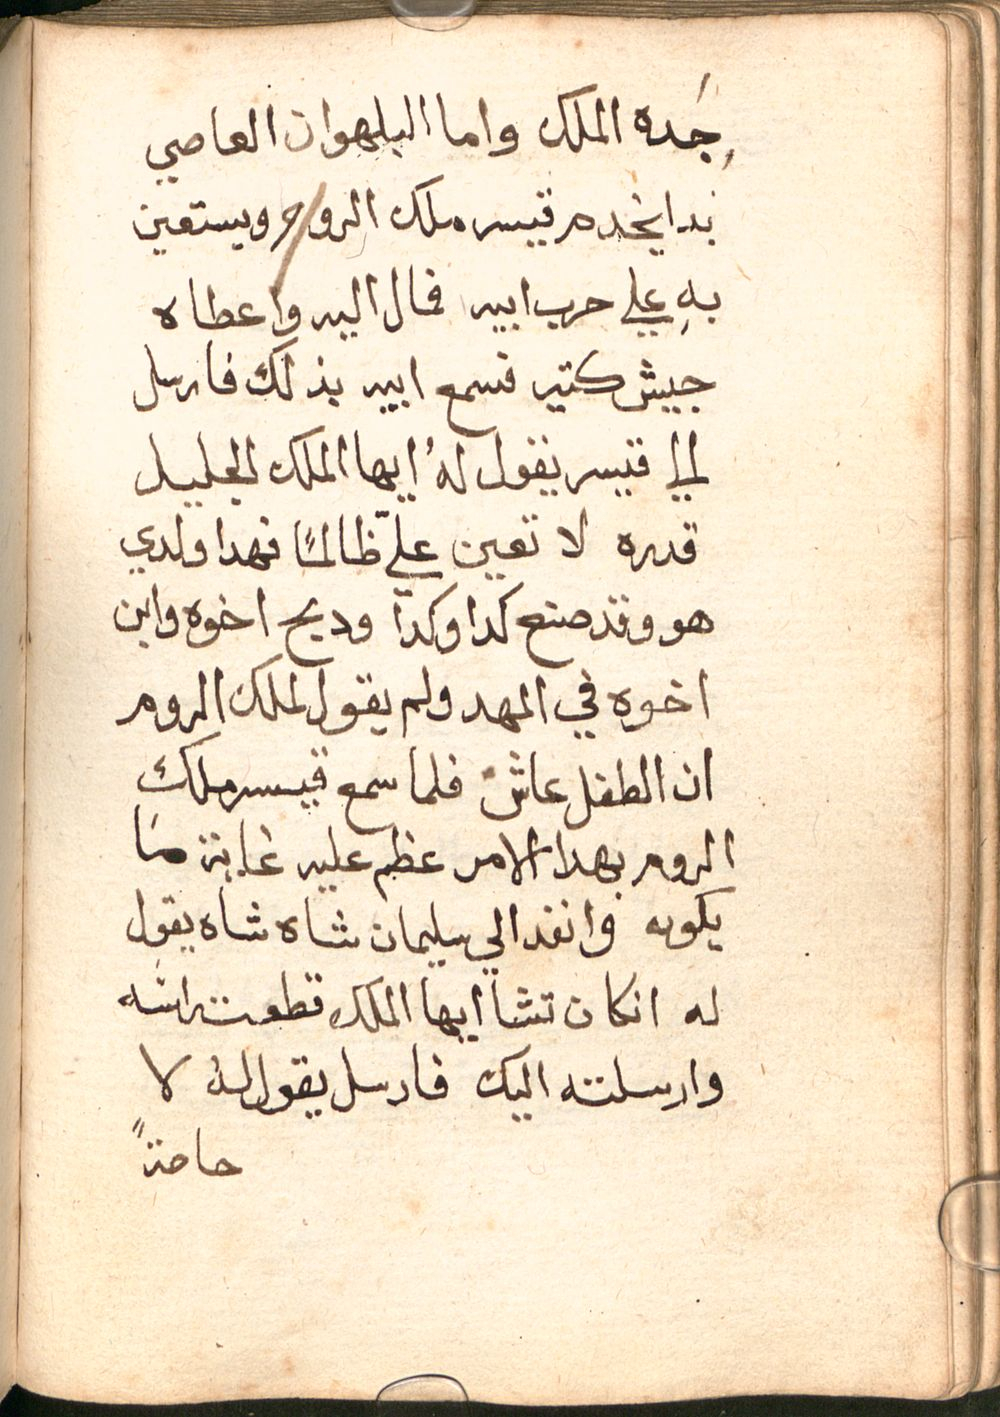 جَده الملك واما البلهوان العاصي
بدا يخدم قيسر ملك الروم ويستعين
بهِ علي حرب ابيه فمال اليه واعطاه
جيش كتير فسمع ابيه بذلك فارسل
الي قيسر يقول لهُ ايها الملك الجليل
قدره لا تعين عليّ ظالمًا فهدا ولدي
هو وقد صنع كدا وكدا ودبح اخوه وابن
اخوه في المهد ولم يقول لملك الروم
ان الطفل عاش فلما سمع قيسر ملك
الروم بهدا الامر عظم عليه غاية مَا
يكون وانفد الي سليمان شاه شاه يقول
له انكان تشا ايها الملك قطعت راسَه
وارسلته اليك فارسل يقول لهُ لا
حاجةً